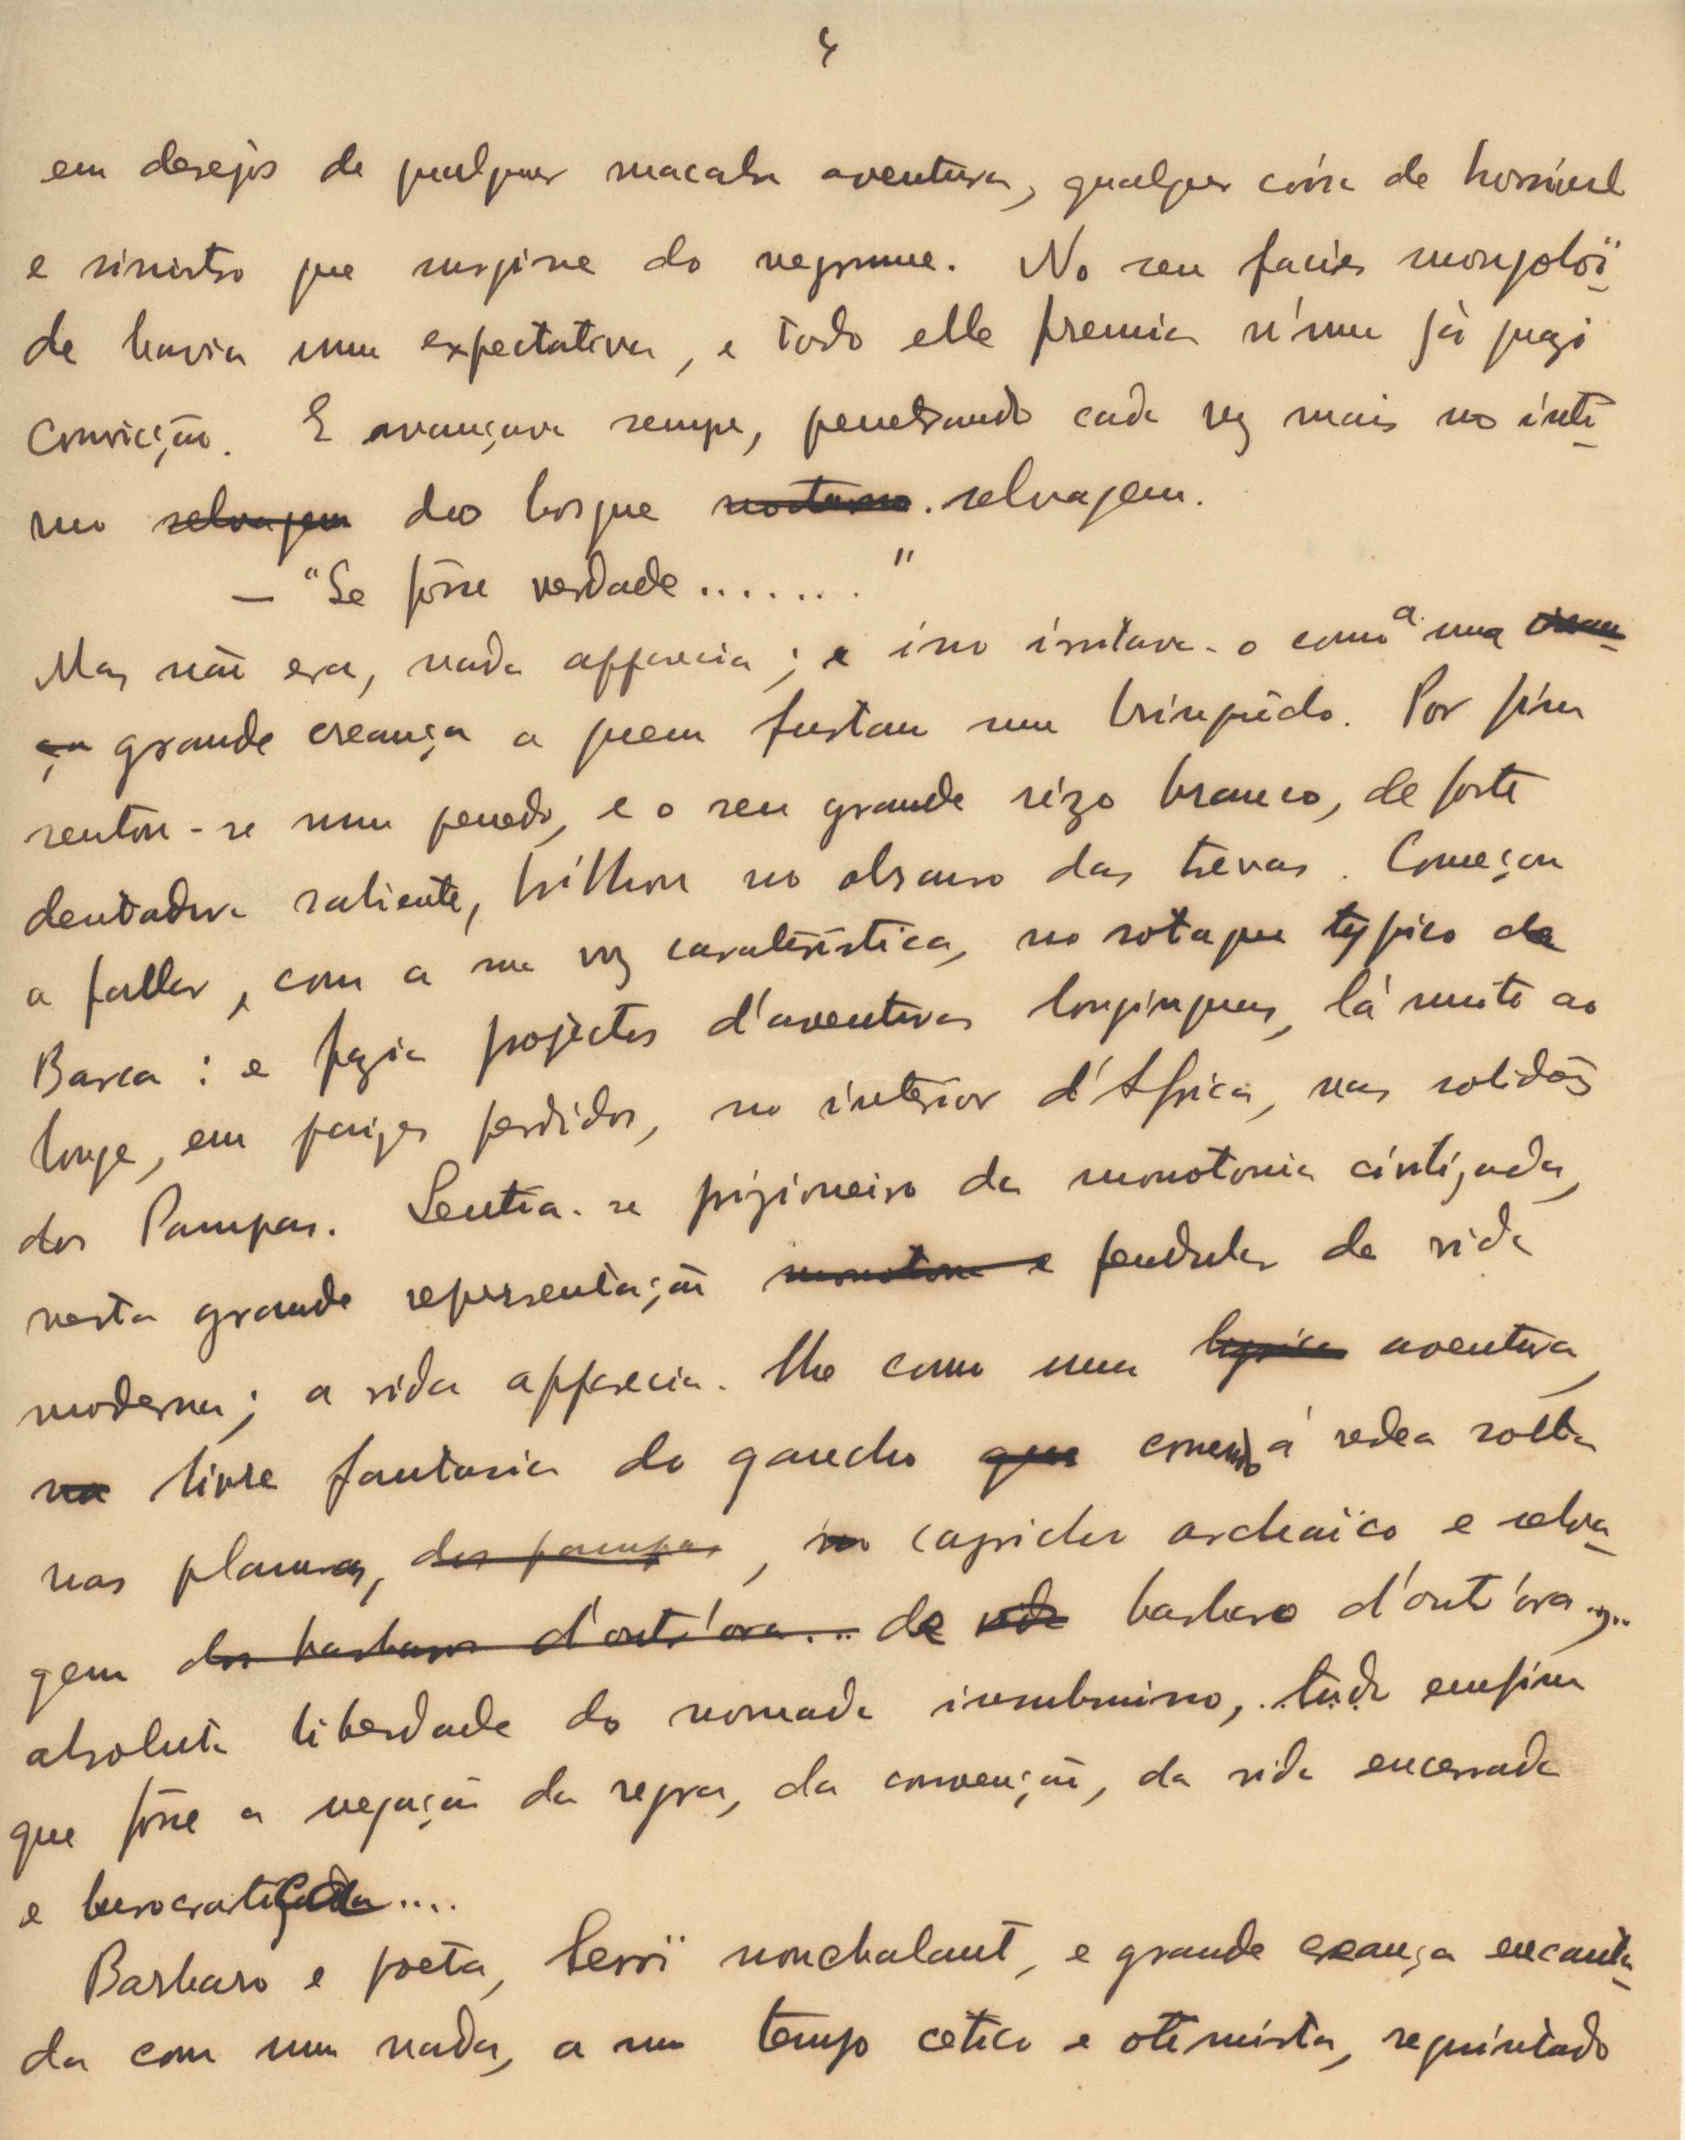 4
em desejos de qualquer macabra aventura, qualquer côisa de horrivel
e sinistro que surgisse do negrume. No seu facies mongoloï-
de havia uma expectativa, e todo elle fremia n'uma já quazi
convicção. E avançava sempre, penetrando cada vez mais no inti-
mo selvagem do bosque nocturno. selvagem.
— "Se fôsse verdade ....... "
Mas não era, nada apparecia; e isso irritava-o como a uma crean-
ça grande creança a quem furtam um brinquêdo. Por fim
sentou-se num penedo, e o seu grande rizo branco, de forte
dentadura saliente, brilhou no obscuro das trevas. Começou
a fallar, com a sua voz caraterística, no sotaque typico da
Barca: e fazia projectos d'aventuras longinquas, lá muito ao
longe, em paizes perdidos, no interior d'Africa, nas solidões
dos Pampas. Sentia-se prizioneiro da monotonia civilizada,
nesta grande representação monotona e pendular da vida
moderna; a vida apparecia-lhe como uma lyrica aventura,
na livre fantasia do gaucho que correndo á redea solta
nas planuras, dos pampas, no capricho archaïco e selva-
gem dos barbaros d'outr'ora... de vida barbaro d'outr'ora...,
absoluta liberdade do nomada insubmisso, tudo emfim
que fôsse a negação da regra, da convenção, da vida encerrada
e burocratizada....
Barbaro e poeta, heroï nonchalant, e grande creança encanta-
da com um nada, a um tempo cetico e otimista, requintado